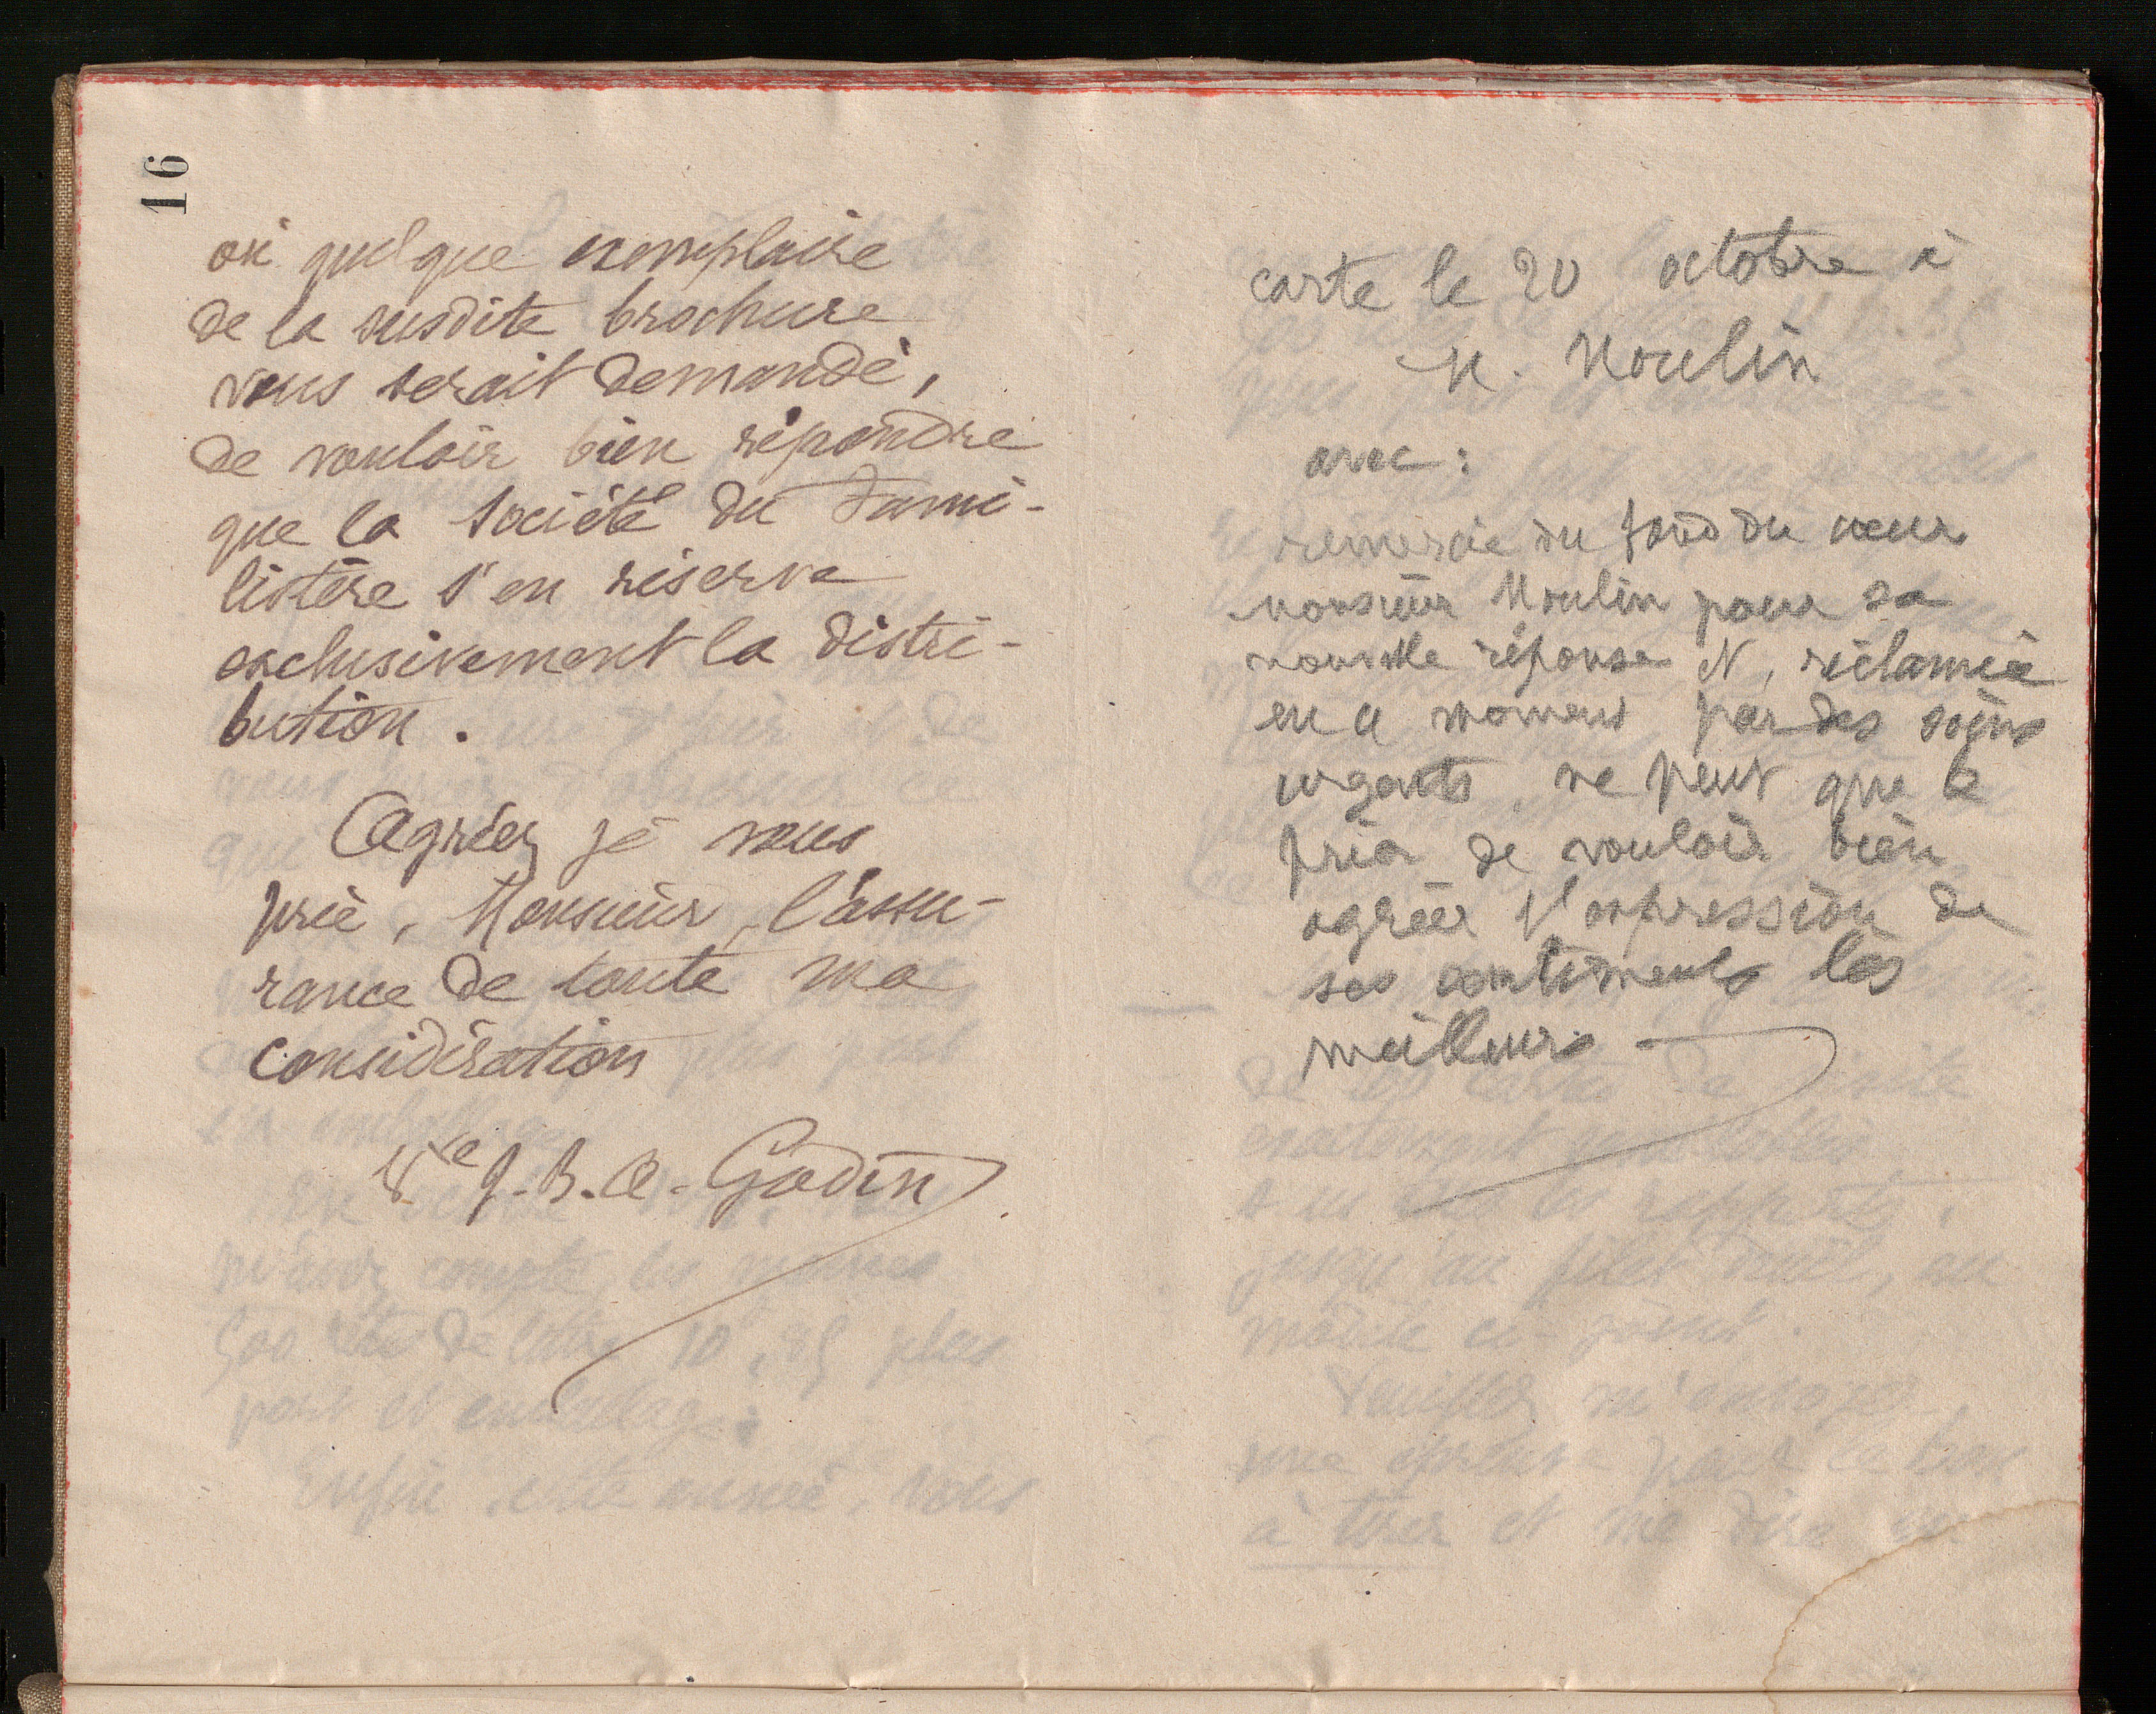 16
où quelque exemplaire
de la susdite brochure
vous serait demandé,
de vouloir bien répondre
que la Société du Fami-
listère s'en réserve
exclusivement la distri-
bution.
Agréez je vous
prie, Monsieur, l'assu-
rance de toute ma
considération
Vve J.-B.-A. Godin
carte le 20 octobre à
M. Moulin
avec :
remercie du fond du cœur
monsieur Moulin pour sa
nouvelle réponse et, réclamée
en ce moment par des soins
urgents, ne peut que le
prier de vouloir bien
agréer l'expression de
ses sentiments les
meilleurs